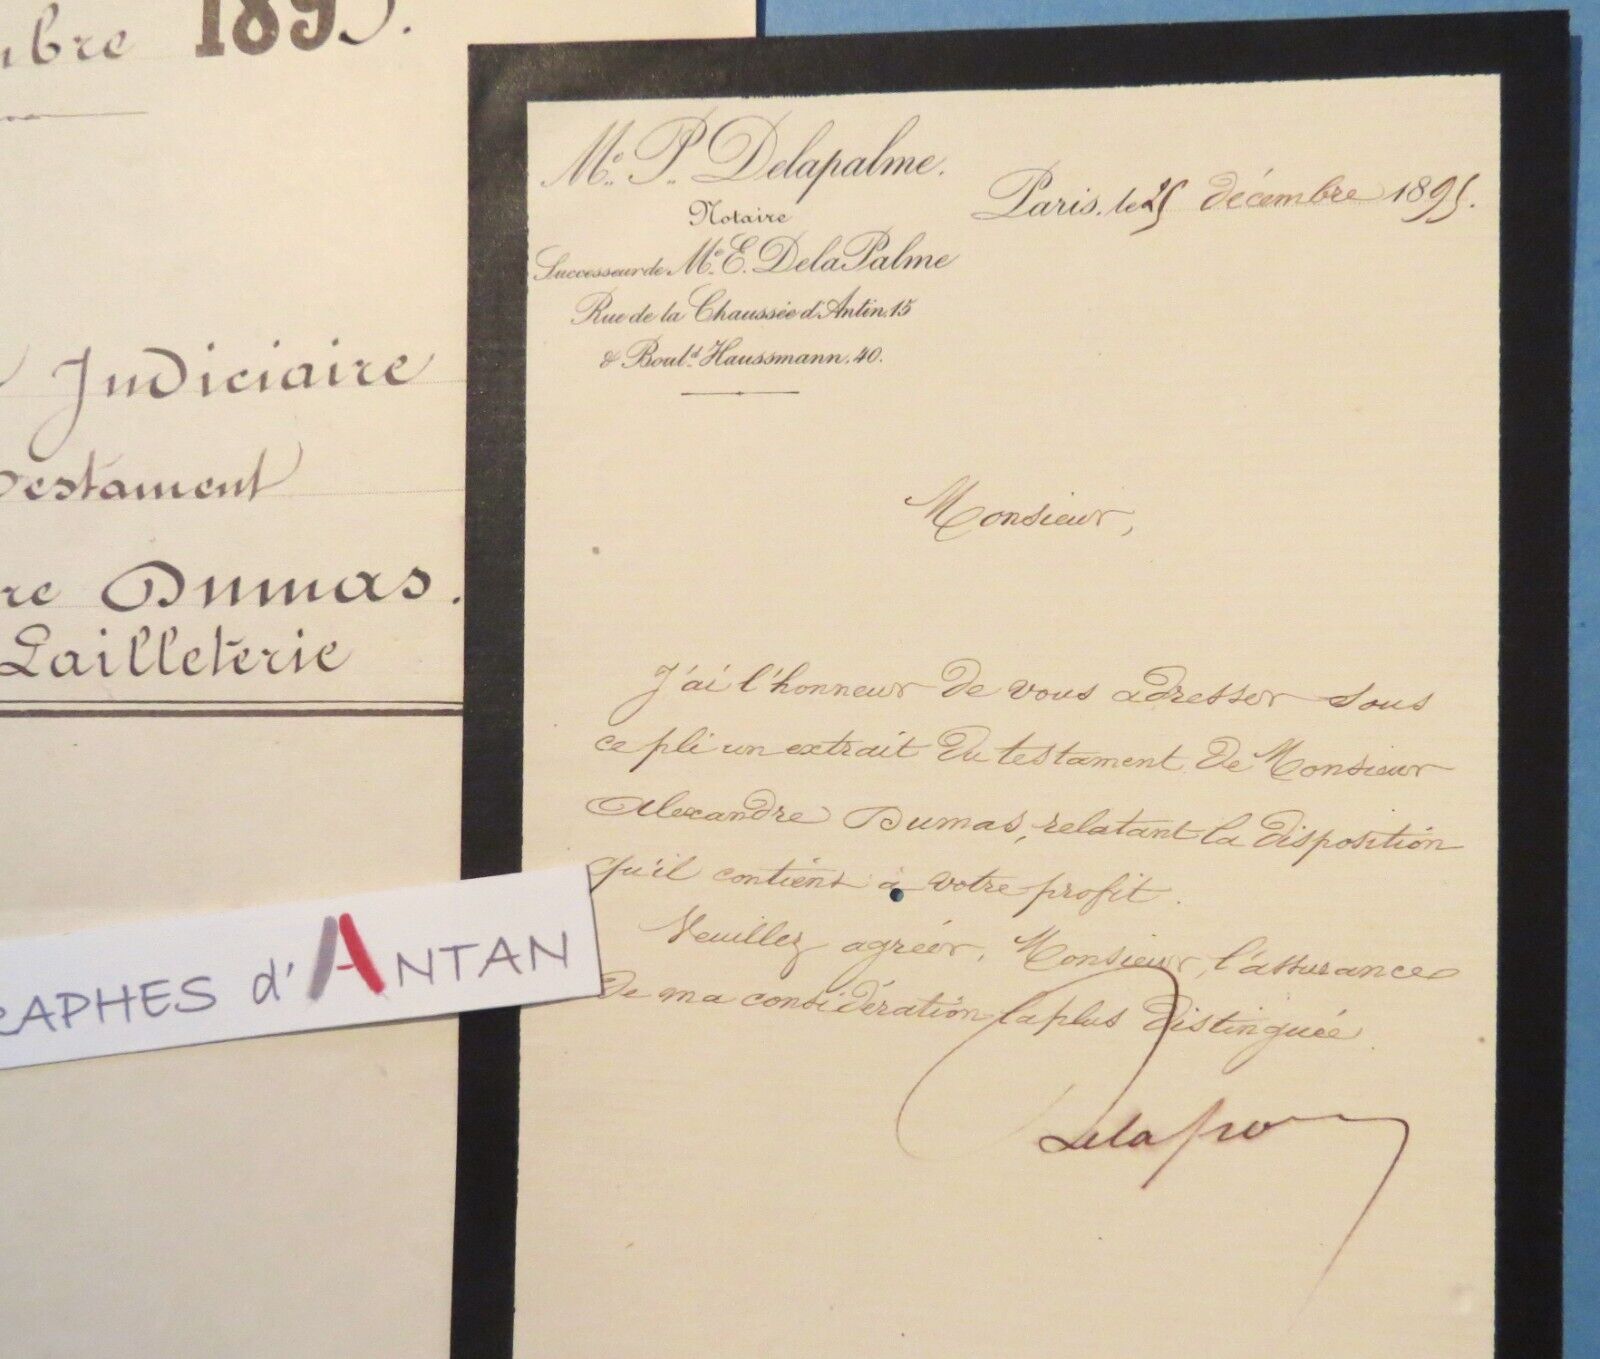 mbre 1895.
Judiciaire
Testament
re Dumas.
Pailleterie
RAPHES d'ANTAN
Me. P. Delapalme.
Notaire
Successeur de Me. E. DelaPalme
Rue de la Chaussée d'Antin. 15
& Bould. Haussmann. 40.
Paris, le 25 décembre 1895.
Monsieur,
J'ai l'honneur de vous adresser sous
ce pli un extrait du testament de Monsieur
Alexandre Dumas, relatant la disposition
qu'il contient à votre profit.
Veuillez agréer, Monsieur, l'assurance
de ma considération la plus distinguée.